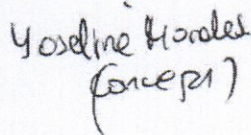 Yoseline Morales
(Concep1)